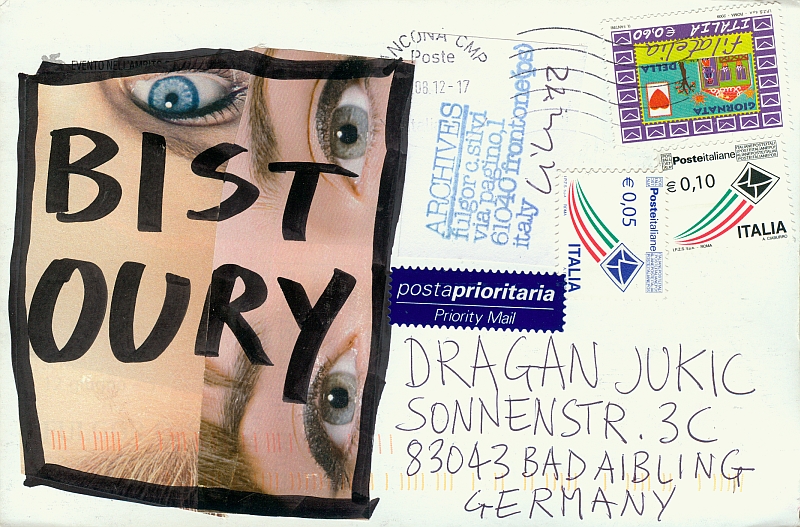 EVENTO NELL'AMBITO
BIST
OURY
ANCONA CMP
Poste
08.12-17
ARCHIVES
fulgor c. silvi
via pagino, 1
61040 frontone (ps)
italy
ITALIA €0,60
filatelia
DELLA
GIORNATA
€ 0,05
Posteitaliane
ITALIA
Posteitaliane
€ 0,10
ITALIA
I.P.Z.S. S.p.A. - ROMA
postaprioritaria
Priority Mail
DRAGAN JUKIC
SONNENSTR. 3C
83043 BAD AIBLING
GERMANY